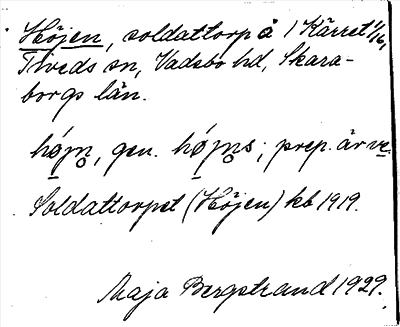 Höjen, soldattorp å 1 Kärret 1/16,
Tiveds sn, Vadsbo hd, Skara-
borgs län.
gen. prep. är
Soldattorpet (Höjen) kb 1919.
Maja Bergstrand 1929.